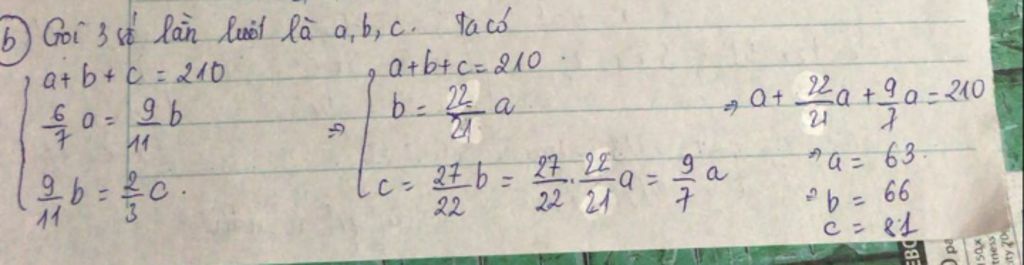 b) Gọi 3 số lần lượt là a, b, c. Ta có
a + b + c = 210
6/7 a = 9/11 b
9/11 b = 2/3 c.
⇒ a+b+c = 210
b = 22/21 a
c = 27/22 b = 27/22 . 22/21 a = 9/7 a
⇒ a + 22/21 a + 9/7 a = 210
⇒ a = 63.
⇒ b = 66
c = 81